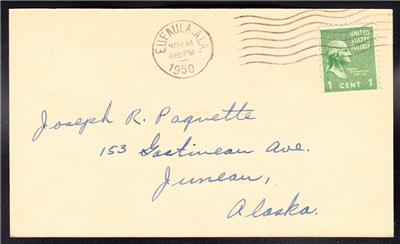 EUFAULA, ALA.
NOV 14
PM
1950
UNITED
STATES
POSTAGE
1 CENT 1
Joseph R. Paquette
153 Gastineau Ave.
Juneau,
Alaska.